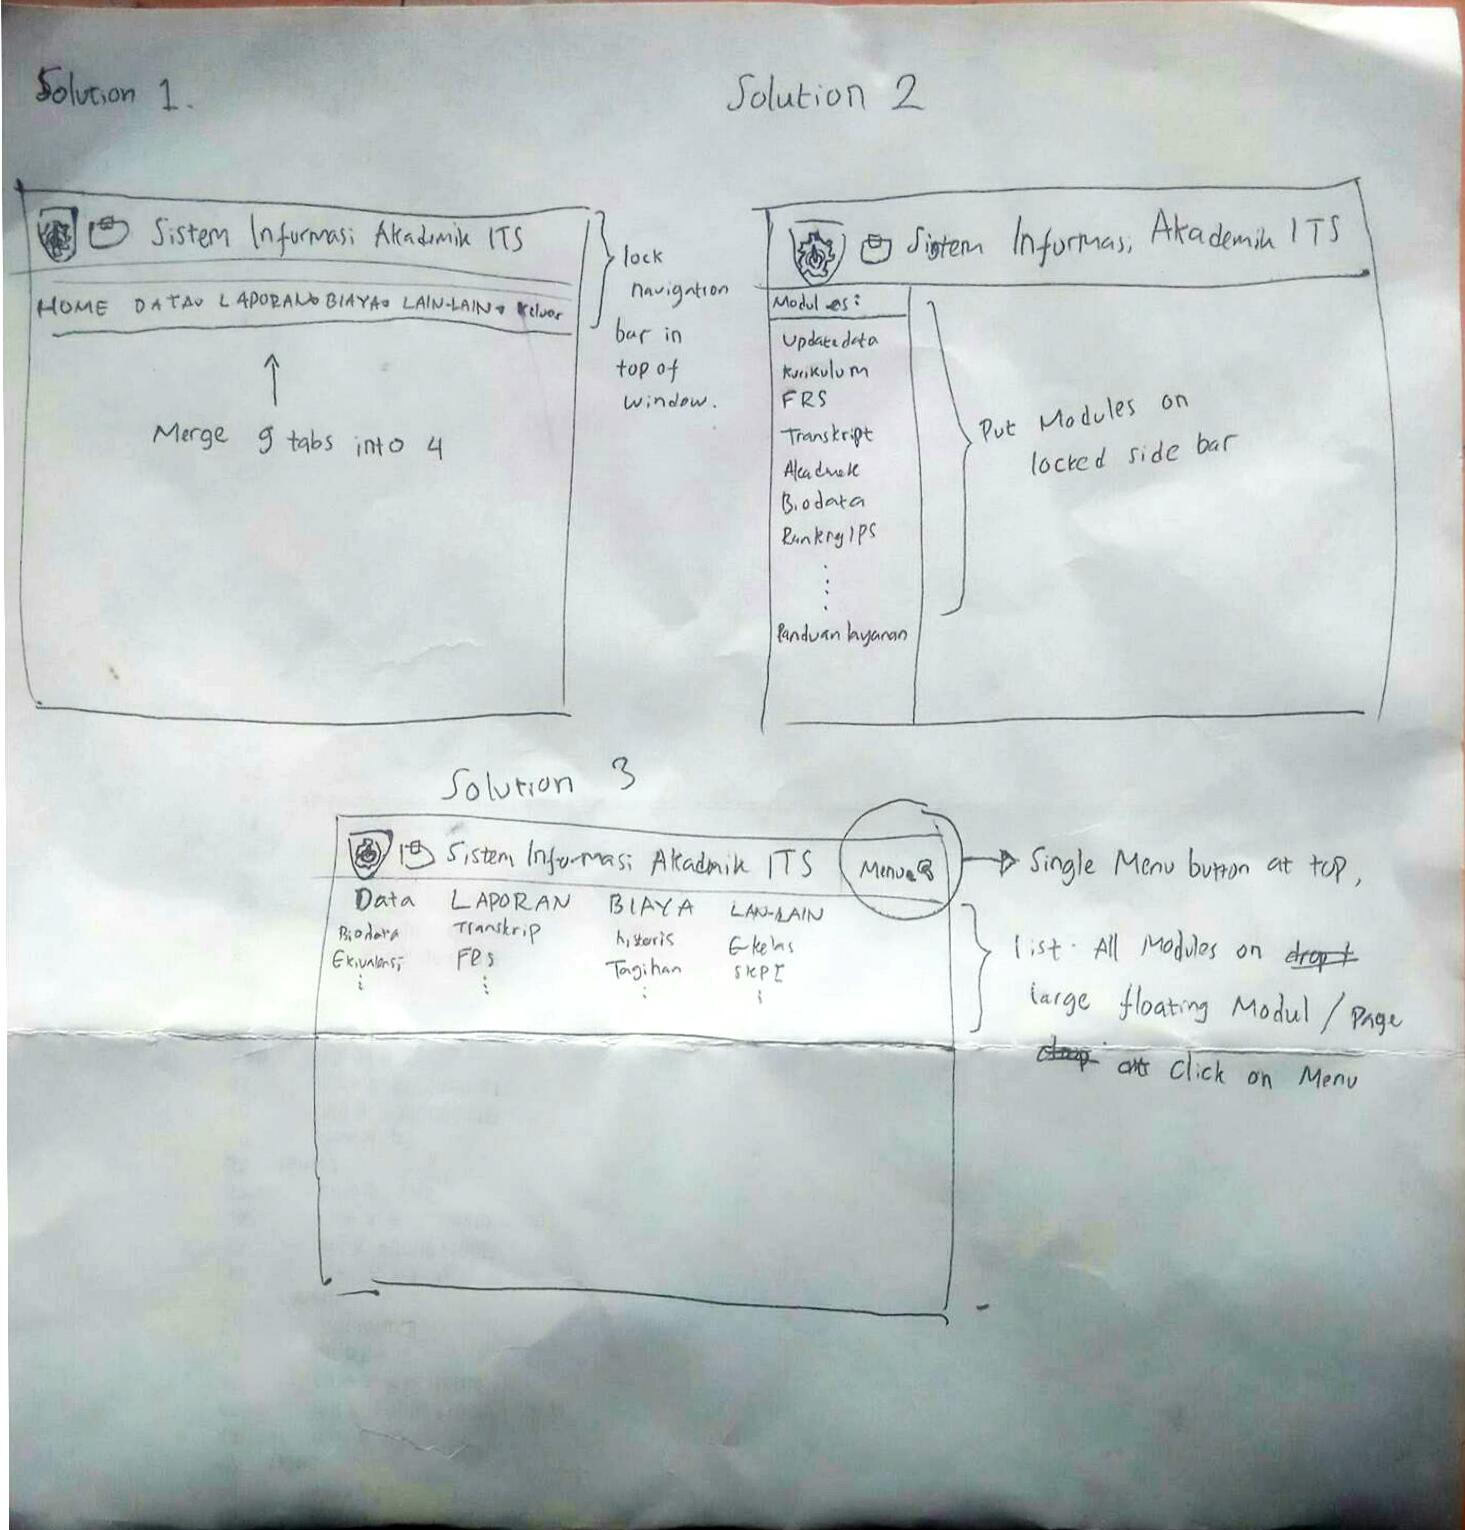 Solution 1.
Sistem Informasi Akademik ITS
HOME DATA LAPORAN BIAYA LAIN-LAIN Keluar
lock
navigation
bar in
top of
window.
Merge 9 tabs into 4
Solution 2
Sistem Informasi Akademik ITS
Modules:
Update data
Kurikulum
FRS
Transkript
Biodata
Ranking IPS
Panduan layanan
Put Modules on
locked side bar
Solution 3
Sistem Informasi Akadmik ITS
Menu
Data LAPORAN BIAYA LAN-LAIN
Biodata Transkrip historis E-kelas
Ekivalensi FRS Tagihan SKPI
Single Menu button at top,
list. All Modules on
large floating Modul / Page
Click on Menu